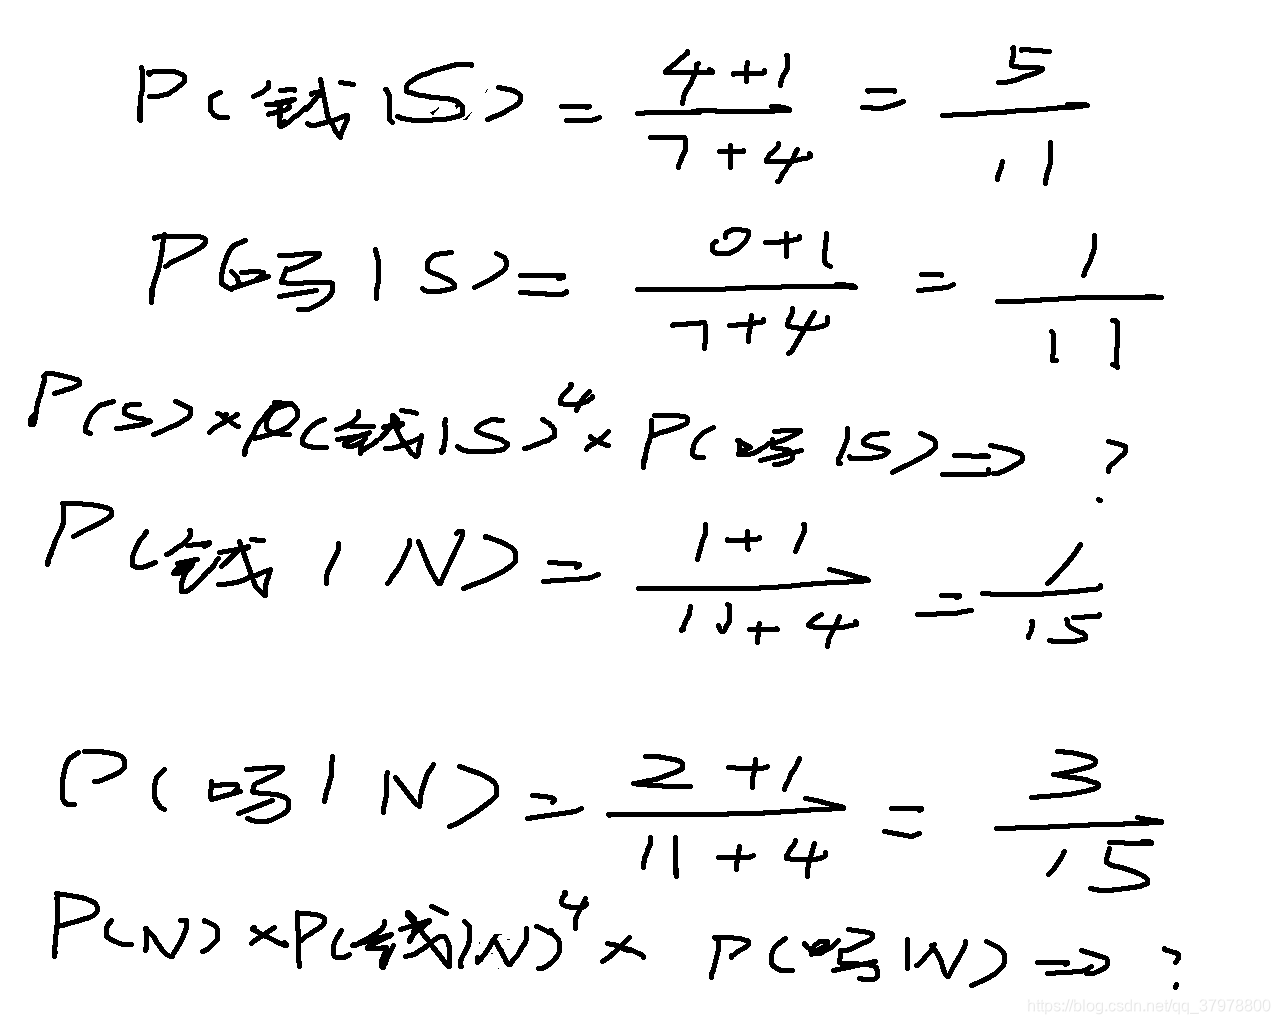 P(钱|S) = (4+1)/(7+4) = 5/11
P(吗|S) = (0+1)/(7+4) = 1/11
P(S)×P(钱|S)^4×P(吗|S) => ?
P(钱|N) = (1+1)/(11+4) = 1/15
P(吗|N) = (2+1)/(11+4) = 3/15
P(N)×P(钱|N)^4×P(吗|N) => ?
https://blog.csdn.net/qq_37978800